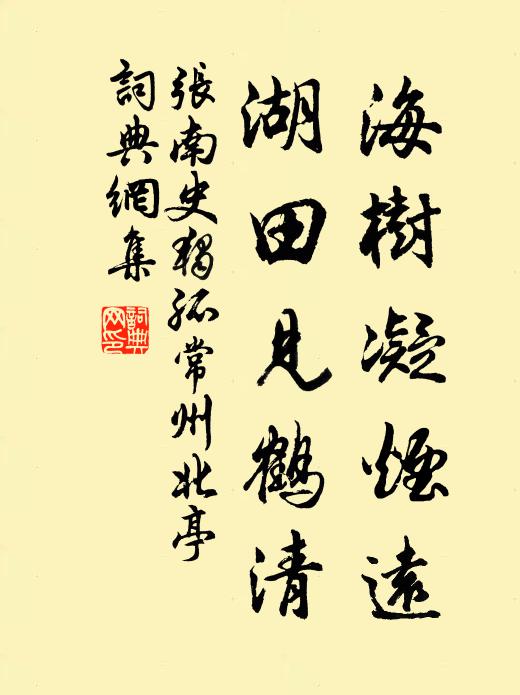 海樹凝煙遠
湖田見鶴清
張南史獨孤常州北亭
詞典網集
詞典网印